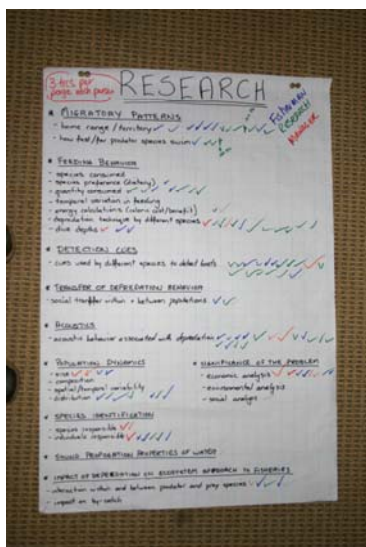 3 ticks per
page each person
RESEARCH
FISHERMAN
RESEARCH
MANAGER
MIGRATORY PATTERNS
- home range / territory
- how fast/far predator species swim
FEEDING BEHAVIOR
- species consumed
- species preference (dietary)
- quantity consumed
- temporal variation in feeding
- energy calculations (caloric cost/benefit)
- depredation technique by different species
- dive depths
DETECTION CUES
- cues used by different species to detect boats
TRANSFER OF DEPREDATION BEHAVIOR
- social transfer within + between populations
ACOUSTICS
- acoustic behavior associated with depredation
POPULATION DYNAMICS
- size
- composition
- spatial/temporal variability
- distribution
SIGNIFICANCE OF THE PROBLEM
- economic analysis
- environmental analysis
- social analysis
SPECIES IDENTIFICATION
- species responsible
- individuals responsible
SOUND PROPAGATION PROPERTIES OF WATER
IMPACT OF DEPREDATION ON ECOSYSTEM APPROACH TO FISHERIES
- interaction within and between predator and prey species
- impact on by-catch